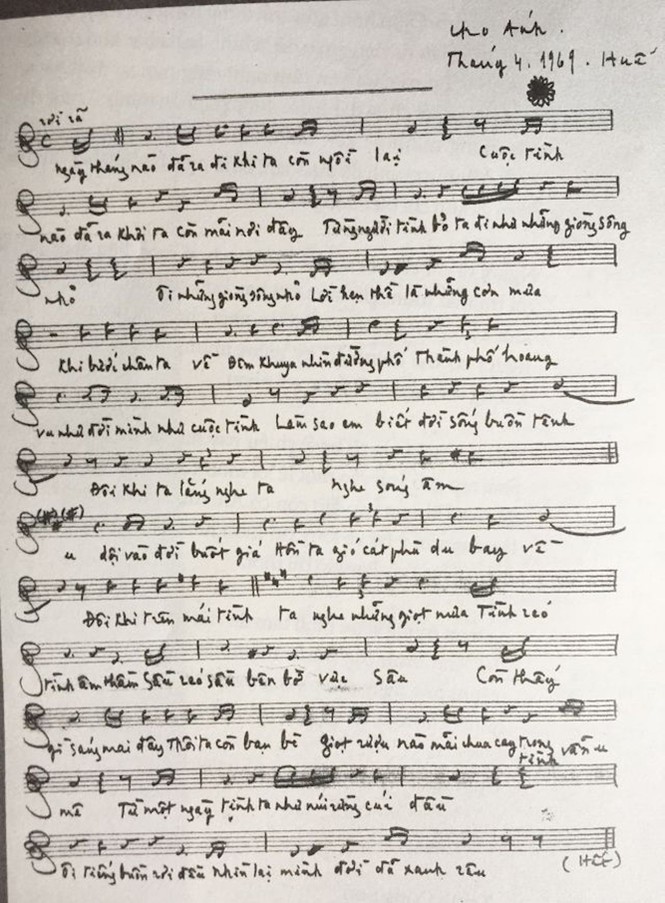 cho Anh.
Tháng 4.1969. Huế
rời rã
ngày tháng nào đã ra đi khi ta còn ngồi lại Cuộc tình
nào đã ra khơi ta còn mãi nơi đây Từng người tình bỏ ta đi như những giòng sông
nhỏ Ôi những giòng sông nhỏ Lời hẹn thề là những cơn mưa
Khi bước chân ta về Đêm khuya nhìn đường phố Thành phố hoang
vu như đời mình như cuộc tình Làm sao em biết đời sống buồn tênh
Đôi khi ta lắng nghe ta nghe sóng âm
u dội vào đời buốt giá Hồn ta gió cát phù du bay về
Đôi khi trên mái tình ta nghe những giọt mưa Tình réo
tình âm thầm Sầu réo sầu bên bờ vực sâu Còn thấy
gì sáng mai đây Thôi ta còn bạn bè giọt rượu nào mãi chưa cay trong vẫn u
tình
mê Từ một ngày tình ta như núi rừng cúi đầu
Ôi tiếng buồn rơi đều Nhìn lại mình đời đã xanh rêu
(Hết)